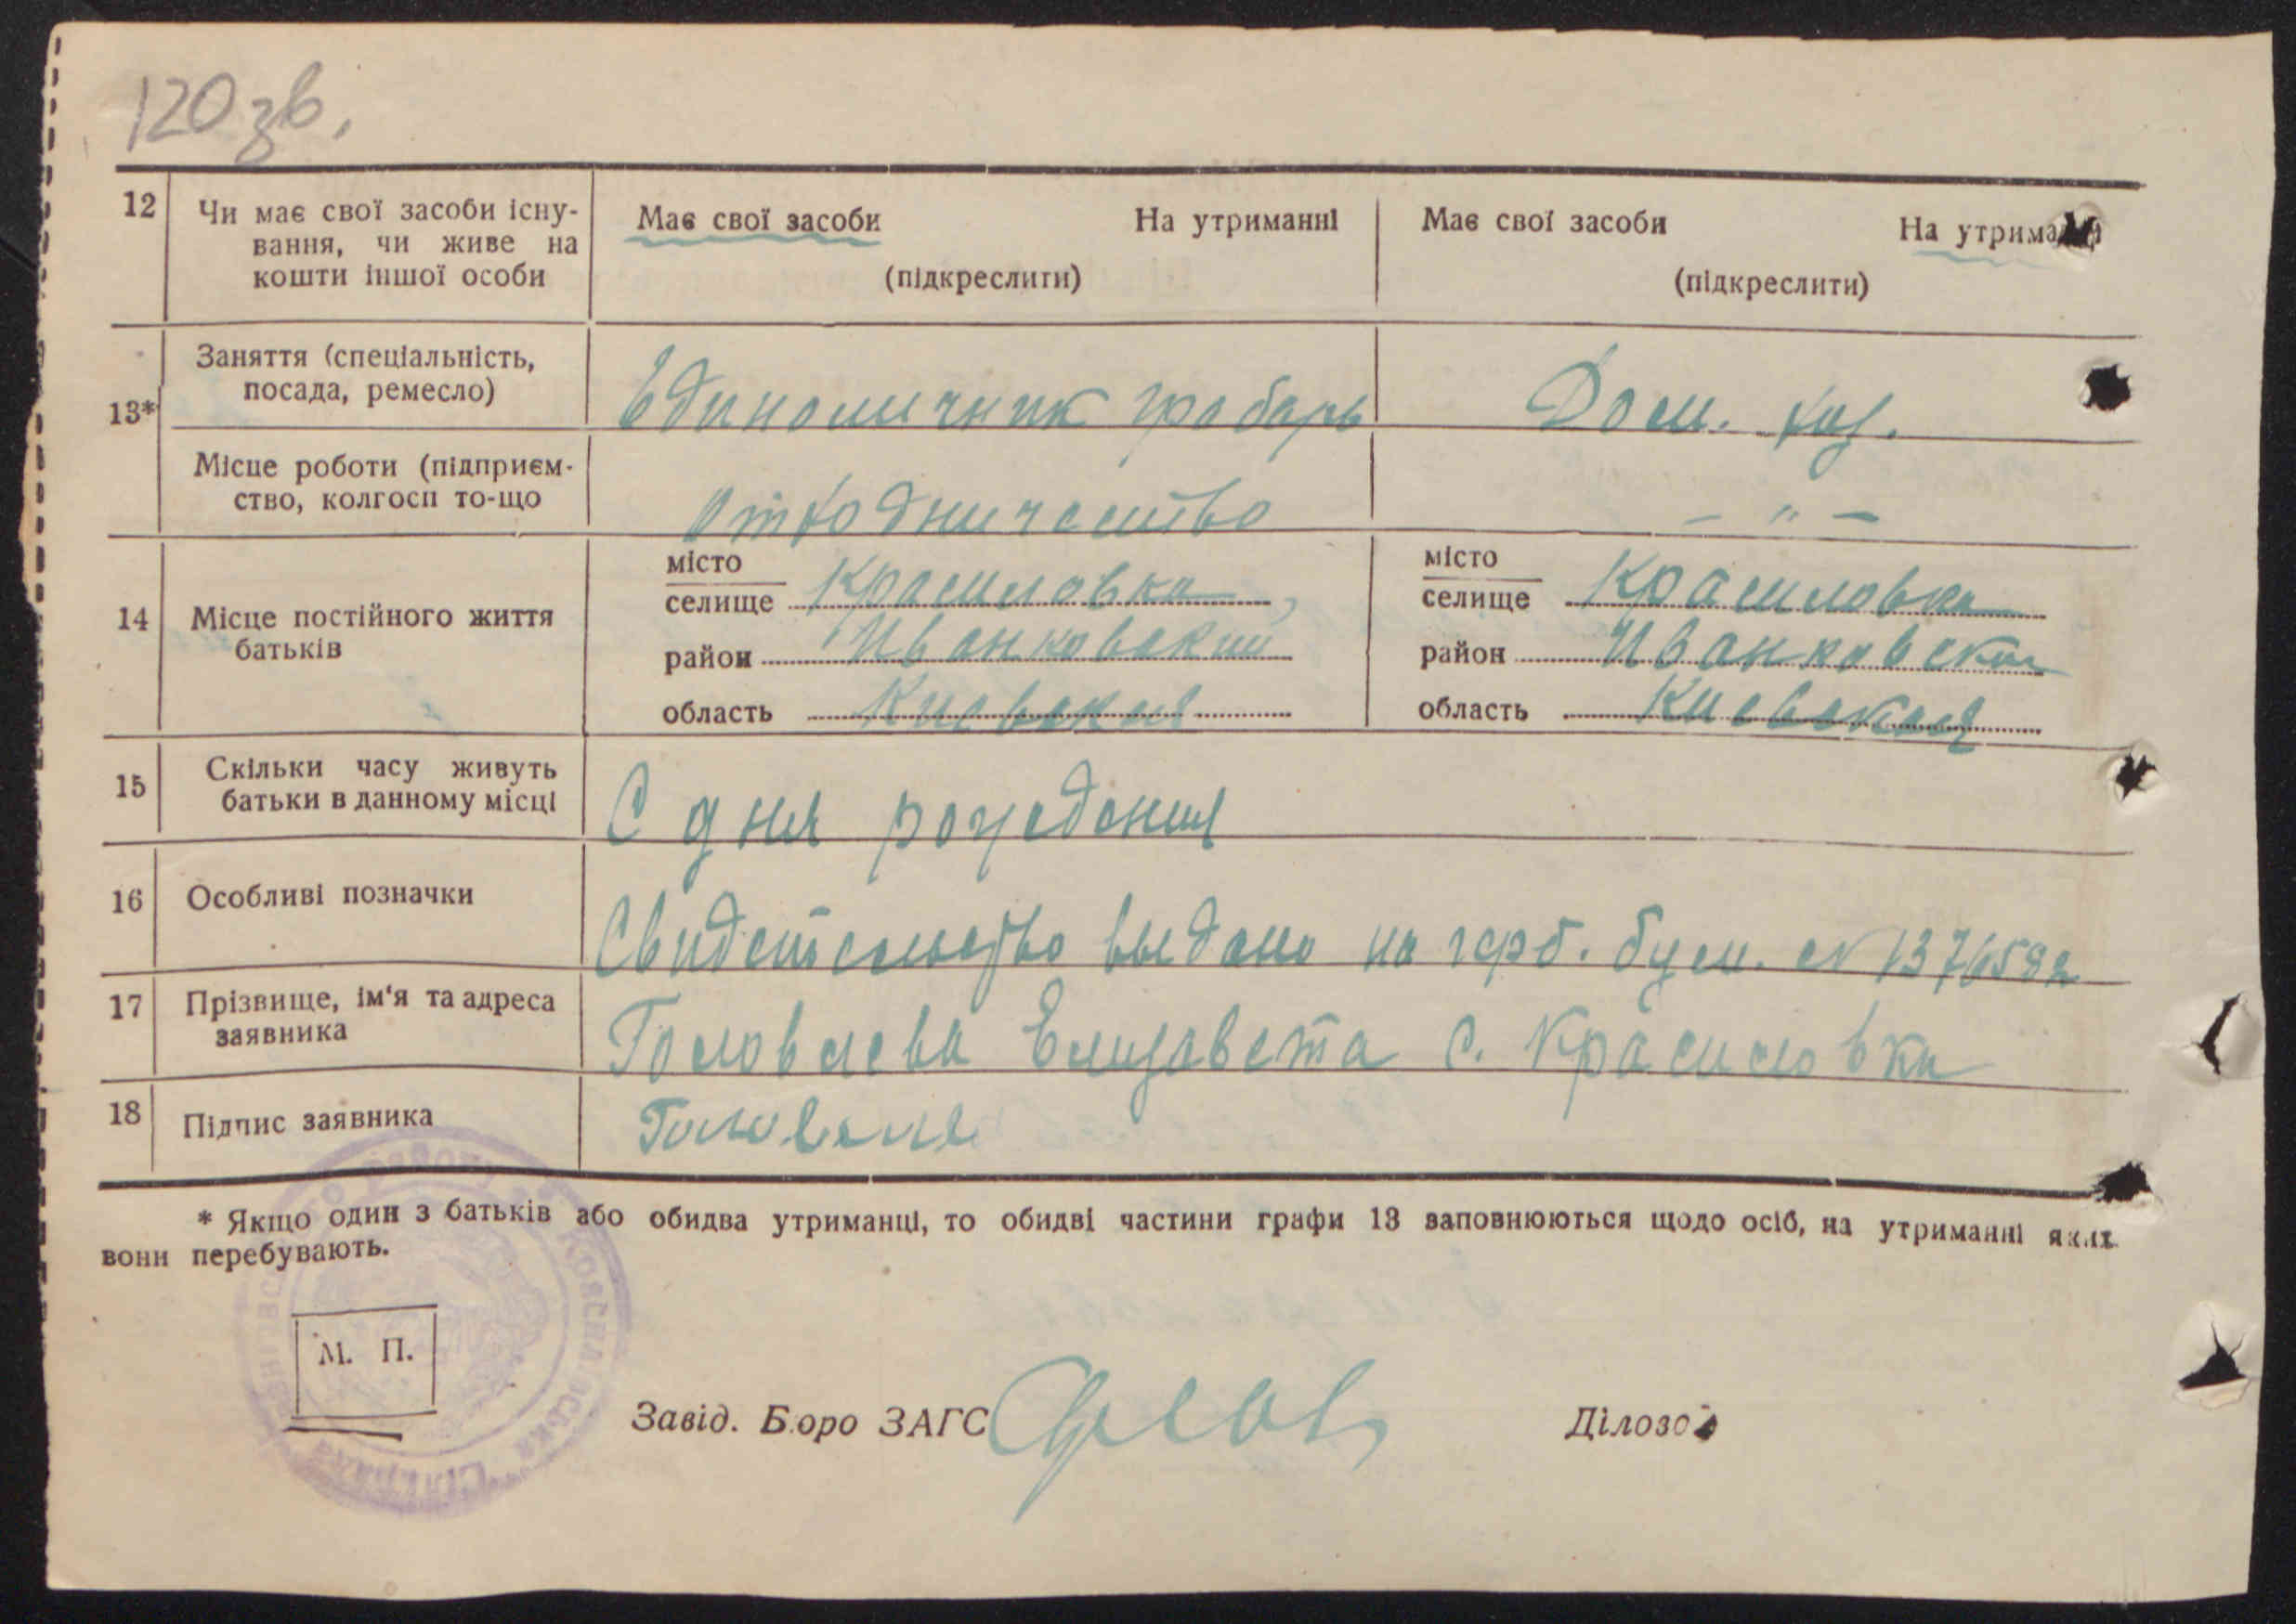 120 зв.
12 Чи має свої засоби існу-
вання, чи живе на
кошти іншої особи
Має свої засоби На утриманні
(підкреслити)
Має свої засоби На утриманні
(підкреслити)
13*
Заняття (спеціальність,
посада, ремесло)
Единоличник грабарь
Дом. хоз.
Місце роботи (підприєм-
ство, колгосп то-що
Отходничество
— " —
14 Місце постійного життя
батьків
місто
селище Красиловка,
район Иванковский
область Киевская
місто
селище Красиловка
район Иванковский
область Киевская
15 Скільки часу живуть
батьки в данному місці
С дня рождения
16 Особливі позначки
Свидетельство выдано на герб. бум. №
17 Прізвище, ім'я та адреса
заявника
Елизавета с. Красиловка
18 Підпис заявника
* Якщо один з батьків або обидва утриманці, то обидві частини графи 13 заповнюються щодо осіб, на утриманні яких
вони перебувають.
М. П.
Завід. Бюро ЗАГС
Діловод